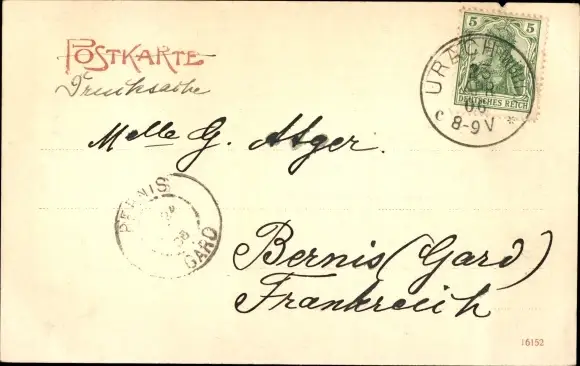 POSTKARTE
Drucksache
5 5
DEUTSCHES REICH
URACH
06
c 8-9V *
Melle G. Atger.
BERNIS
GARD
Bernis (Gard)
Frankreich
16152